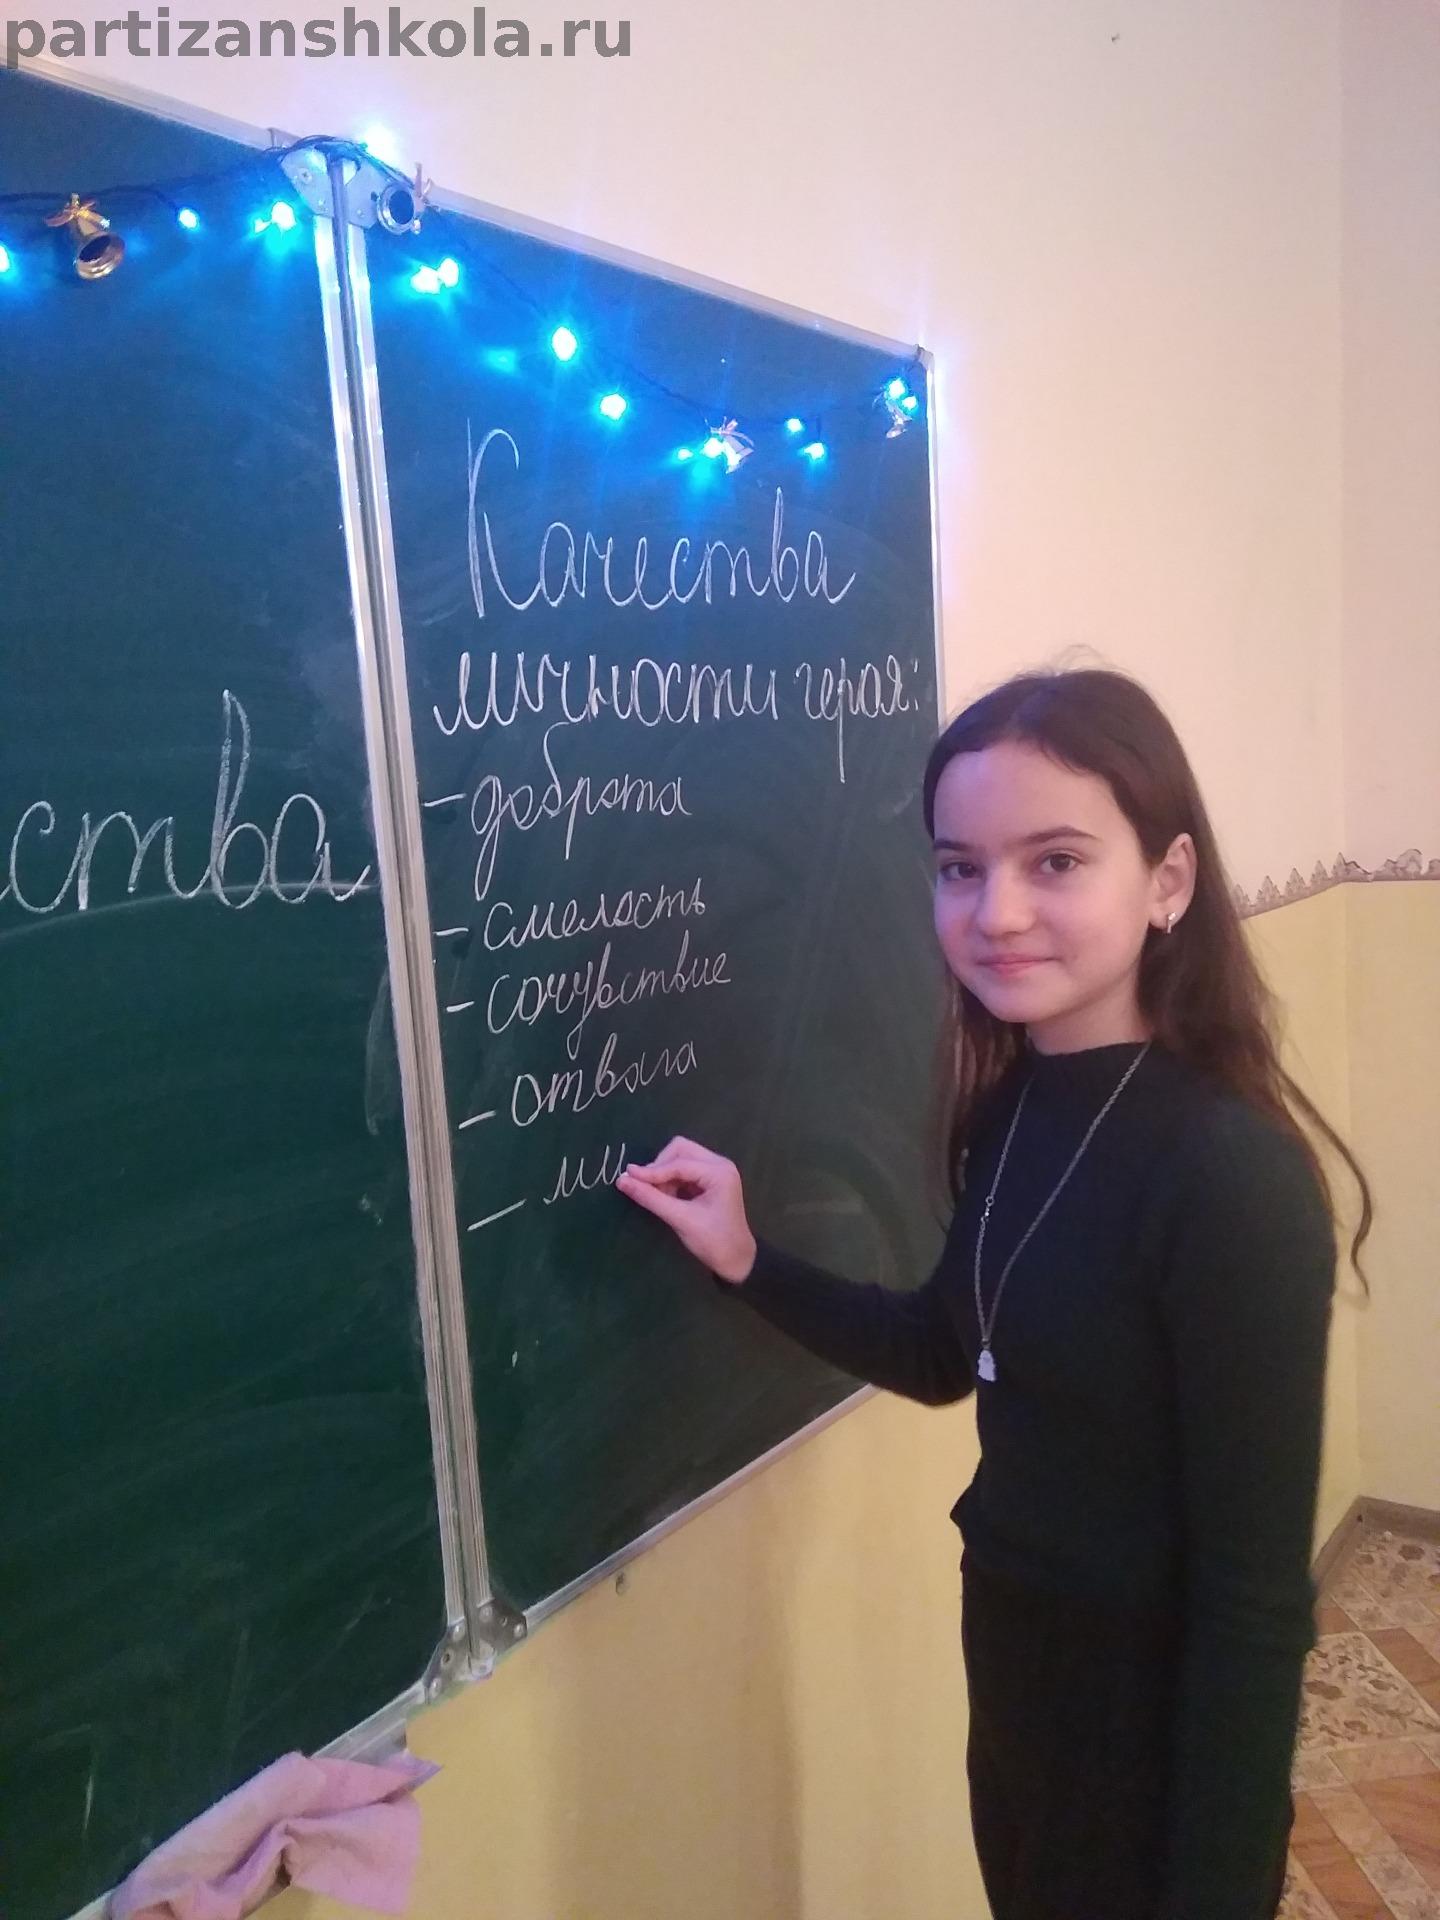 partizanshkola.ru
Качества
личности героя:
ства
- доброта
- смелость
- сочувствие
- отвага
- ми